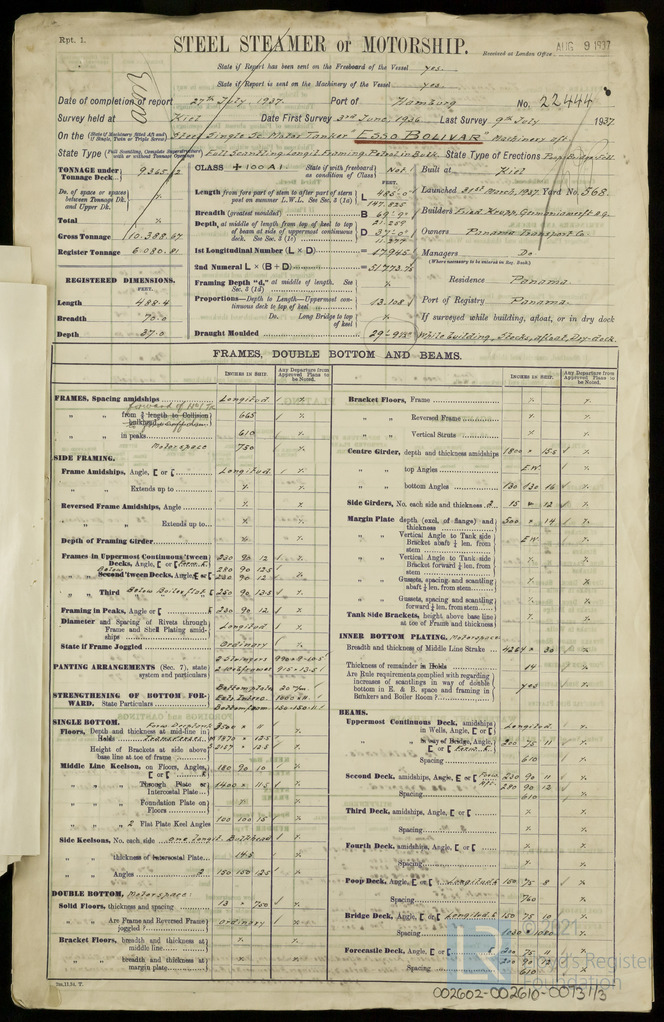 Rpt. 1.
STEEL STEAMER or MOTORSHIP.
Received at London Office
AUG 9 1937
State if Report has been sent on the Freeboard of the Vessel yes.
State if Report is sent on the Machinery of the Vessel yes.
Date of completion of report 27th July 1937. Port of Hamburg No. 22444
Survey held at Kiel Date First Survey 3rd June, 1936 Last Survey 9th July 1937
On the Steel Single Sc. Motor Tanker "ESSO BOLIVAR" Machinery aft
State Type Full Scantling, Longit. Framing, Petrol in Bulk. State Type of Erections Poop Bridge Fcle.
TONNAGE under Tonnage Deck 9365.12
Do. of space or spaces between Tonnage Dk. and Upper Dk.
Total
Gross Tonnage 10.388.67
Register Tonnage 6.080.81
REGISTERED DIMENSIONS.
FEET.
Length 488.4
Breadth 75.0
Depth 37.0
CLASS +100A1 State if with freeboard as condition of Class Not
Length from fore part of stem to after part of stern post on summer L.W.L. See Sec. 3 (1a) L
147.825
Breadth (greatest moulded) B
Depth, at middle of length from top of keel to top of beam at side of uppermost continuous deck. See Sec. 3 (1c) D 37'-0"
1st Longitudinal Number (L × D) = 17945
2nd Numeral L × (B + D) =
Framing Depth "d," at middle of length. See Sec. 3 (1d)
Proportions—Depth to Length—Uppermost continuous deck to top of keel 13.108
Do. Long Bridge to top of keel
Draught Moulded
Built at Kiel
Launched 31st March, 1937 Yard No. 568
Builders Fried. Krupp Germaniawerft A.G.
Owners Panama Transport Co.
Managers Do
(Where necessary to be entered in Reg. Book)
Residence Panama
Port of Registry Panama
If surveyed while building, afloat, or in dry dock
While building, Stocks, afloat, Dry-dock.
FRAMES, DOUBLE BOTTOM AND BEAMS.
INCHES IN SHIP.
Any Departure from Approved Plans to be Noted.
INCHES IN SHIP.
Any Departure from Approved Plans to be Noted.
FRAMES, Spacing amidships Longitud.
" " from ⅗ length to Collision bulkhead 665
" " in peaks 610
Motorspace 750
SIDE FRAMING.
Frame Amidships, Angle, [ or [ Longitud.
" " Extends up to
Reversed Frame Amidships, Angle
" " Extends up to
Depth of Framing Girder
Frames in Uppermost Continuous 'tween Decks, Angle, [ or [ 230 90 12
Second 'tween Decks, Angle, [ or [ 230 90 12
" " Third Below Boiler flat 250 90 13.5
Framing in Peaks, Angle or [ 230 90 12
Diameter and Spacing of Rivets through Frame and Shell Plating amidships Longitud
State if Frame Joggled Ordinary
PANTING ARRANGEMENTS (Sec. 7), state system and particulars
STRENGTHENING OF BOTTOM FORWARD. State Particulars
SINGLE BOTTOM.
Floors, Depth and thickness at mid-line in Holds
Height of Brackets at side above base line at toe of frame
Middle Line Keelson, on Floors, Angles, [ or [ 180 90 10
" " Through Plate or Intercostal Plate 1400 × 11.5
" " Foundation Plate on Floors
" " 2 Flat Plate Keel Angles 100 100 15
Side Keelsons, No. each side one Longit. Bulkhead
" " thickness of Intercostal Plate 14.5
" " Angles 150 150 12.5
DOUBLE BOTTOM, Motorspace:
Solid Floors, thickness and spacing 13 × 750
" " Are Frame and Reversed Frame joggled? Ordinary
Bracket Floors, breadth and thickness at middle line
" " breadth and thickness at margin plate
Bracket Floors, Frame
" " Reversed Frame
" " Vertical Struts
Centre Girder, depth and thickness amidships 1800 × 15.5
" " top Angles E.W.
" " bottom Angles 130 130 16
Side Girders, No. each side and thickness 2. 15 × 12
Margin Plate depth (excl. of flange) and thickness 500 × 14
" " Vertical Angle to Tank side Bracket abaft ¼ len. from stem E.W.
" " Vertical Angle to Tank side Bracket forward ¼ len. from stem
" " Gussets, spacing and scantling abaft ¼ len. from stem
" " Gussets, spacing and scantling forward ¼ len. from stem
Tank Side Brackets, height above base line at toe of Frame and thickness
INNER BOTTOM PLATING. Motorspace
Breadth and thickness of Middle Line Strake 4264 × 30
Thickness of remainder in Holds 14
Are Rule requirements complied with regarding increases of scantlings in way of double bottom in E. & B. space and framing in Bunkers and Boiler Room? yes
BEAMS.
Uppermost Continuous Deck, amidships in Wells, Angle, [ or [ Longitud.
" " in way of Bridge, Angle, [ or [ 200 75 11
Spacing 610
Second Deck, amidships, Angle, [ or [ 230 90 11
280 90 12
Spacing 610
Third Deck, amidships, Angle, [ or [
Spacing
Fourth Deck, amidships, Angle, [ or [
Spacing
Poop Deck, Angle, [ or [ Longitud. 150 75 8
Spacing 760
Bridge Deck, Angle, [ or [ Longitud. 150 75 10
Spacing
Forecastle Deck, Angle, [ or [ 200 75 11
Spacing 610
© 2021
Lloyd's Register
Foundation
002602-002610-0073 1/3